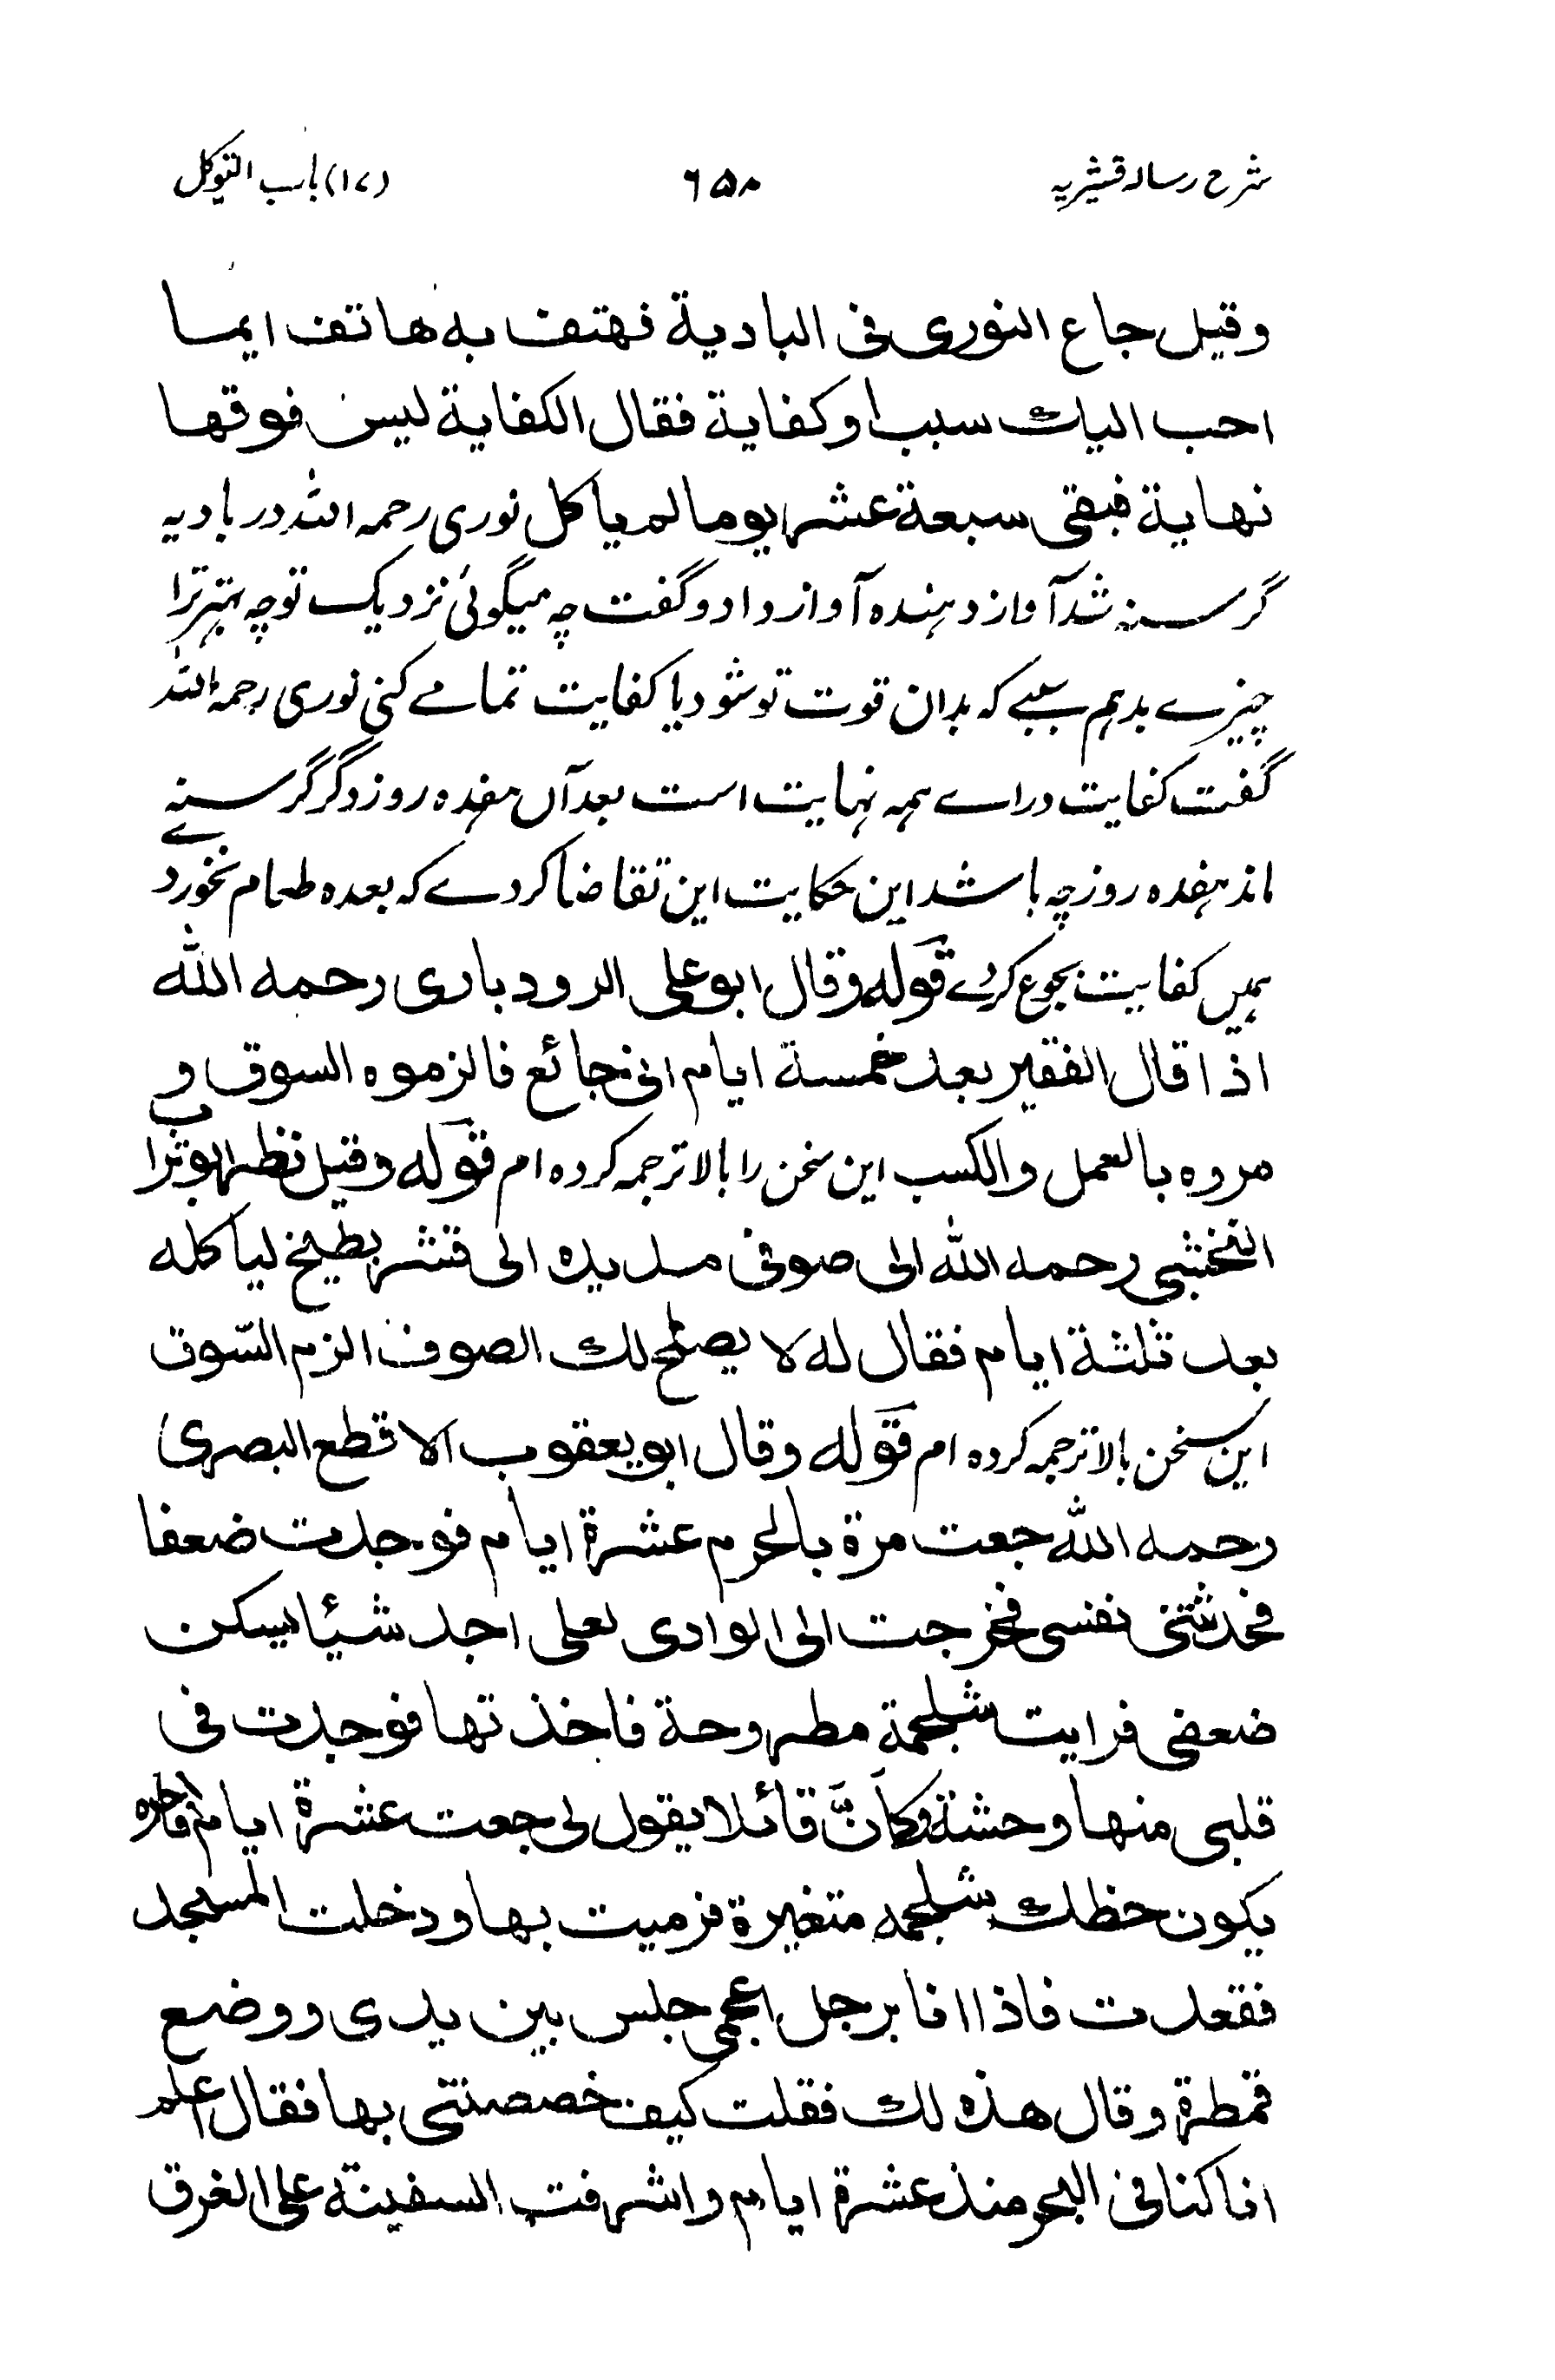 شرح رسالہ قشیریہ ۶۵۸ (۱۷) باب التوکل
وقیل جاع النوری فی البادیة فهتف به هاتف ایما
احب الیك سبب او کفایة فقال الکفایة لیس فوقها
نهایة فبقی سبعة عشر یوما لم یاکل نوری رحمہ اللہ در بادیہ
گرسنہ شد آواز دہندہ آواز داد و گفت چہ میگوئی نزدیک تو چہ بہتر ترا
چیزے بدہم سببے کہ بدان قوت تو شود یا کفایت تمامے کنی نوری رحمہ اللہ
گفت کفایت وراے ہمہ نہایت است بعد آں ہفدہ روز دگر گرسنہ
ماند ہفدہ روز چہ باشد این حکایت این تقاضا کردے کہ بعدہ طعام نخوردے
ہمیں کفایت بجوع کردے قوله وقال ابو علی الرودباری رحمه الله
اذا قال الفقیر بعد خمسة ایام انی جائع فالزموه السوق و
مروه بالعمل والکسب این سخن را بالا ترجمہ کردہ ام قوله وقیل نظر ابو تراب
النخشبی رحمه الله الی صوفی مد یده الی قشر بطیخ لیاکله
بعد ثلثة ایام فقال له لا یصلح لك الصوف الزم السّوق
این سخن بالا ترجمہ کردہ ام قوله وقال ابو یعقوب الاقطع البصری
رحمه الله جعت مرة بالحرم عشرة ایام فوجدت ضعفا
فحدثتنی نفسی فخرجت الی الوادی لعلی اجد شیئا یسکن
ضعفی فرایت شلجمة مطروحة فاخذتها فوجدت فی
قلبی منها وحشة وکاَنَّ قائلا یقول لی جعت عشرة ایام فاخره
یکون حظك شلجمه متغیرة فرمیت بها ودخلت المسجد
فقعدت فاذا انا برجل اعجمی جلس بین یدی ووضع
قمطرة وقال هذه لك فقلت کیف خصصتنی بها فقال اعلم
انا کنا فی البحر منذ عشرة ایام واشرفت السفینة علی الغرق